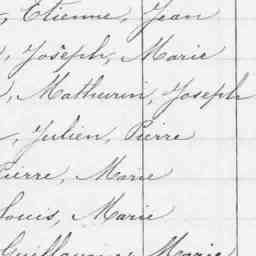 , Etienne, Jean
, Joseph, Marie
, Mathurin, Joseph
, Julien, Pierre
Pierre, Marie
Louis, Marie
Guillaume, Marie